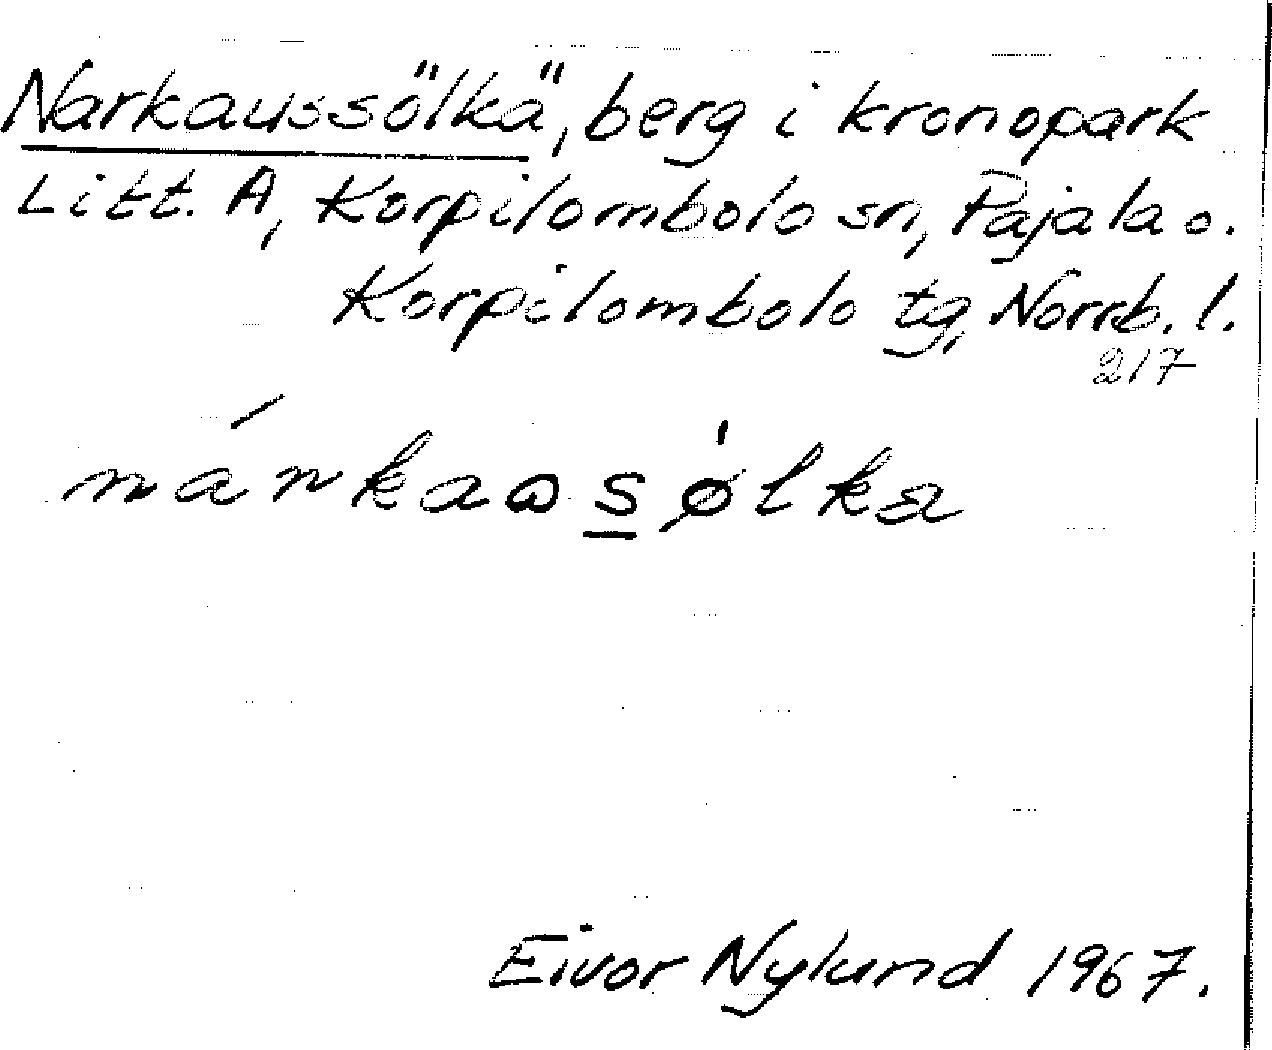 Narkaussölkä, berg i kronopark
Litt. A, Korpilombolo sn, Pajala o.
Korpilombolo tg, Norrb. l.
217
Eivor Nylund 1967.